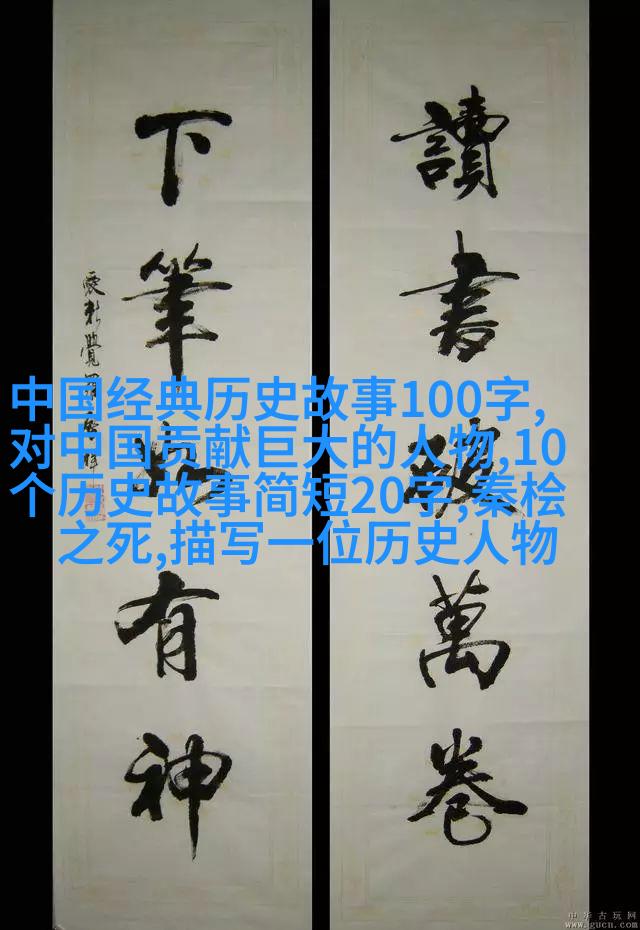 讀書破萬卷
下筆如有神
中国经典历史故事100字,
对中国贡献巨大的人物,10
个历史故事简短20字,秦桧
之死,描写一位历史人物
中华古玩网
www.gucn.com